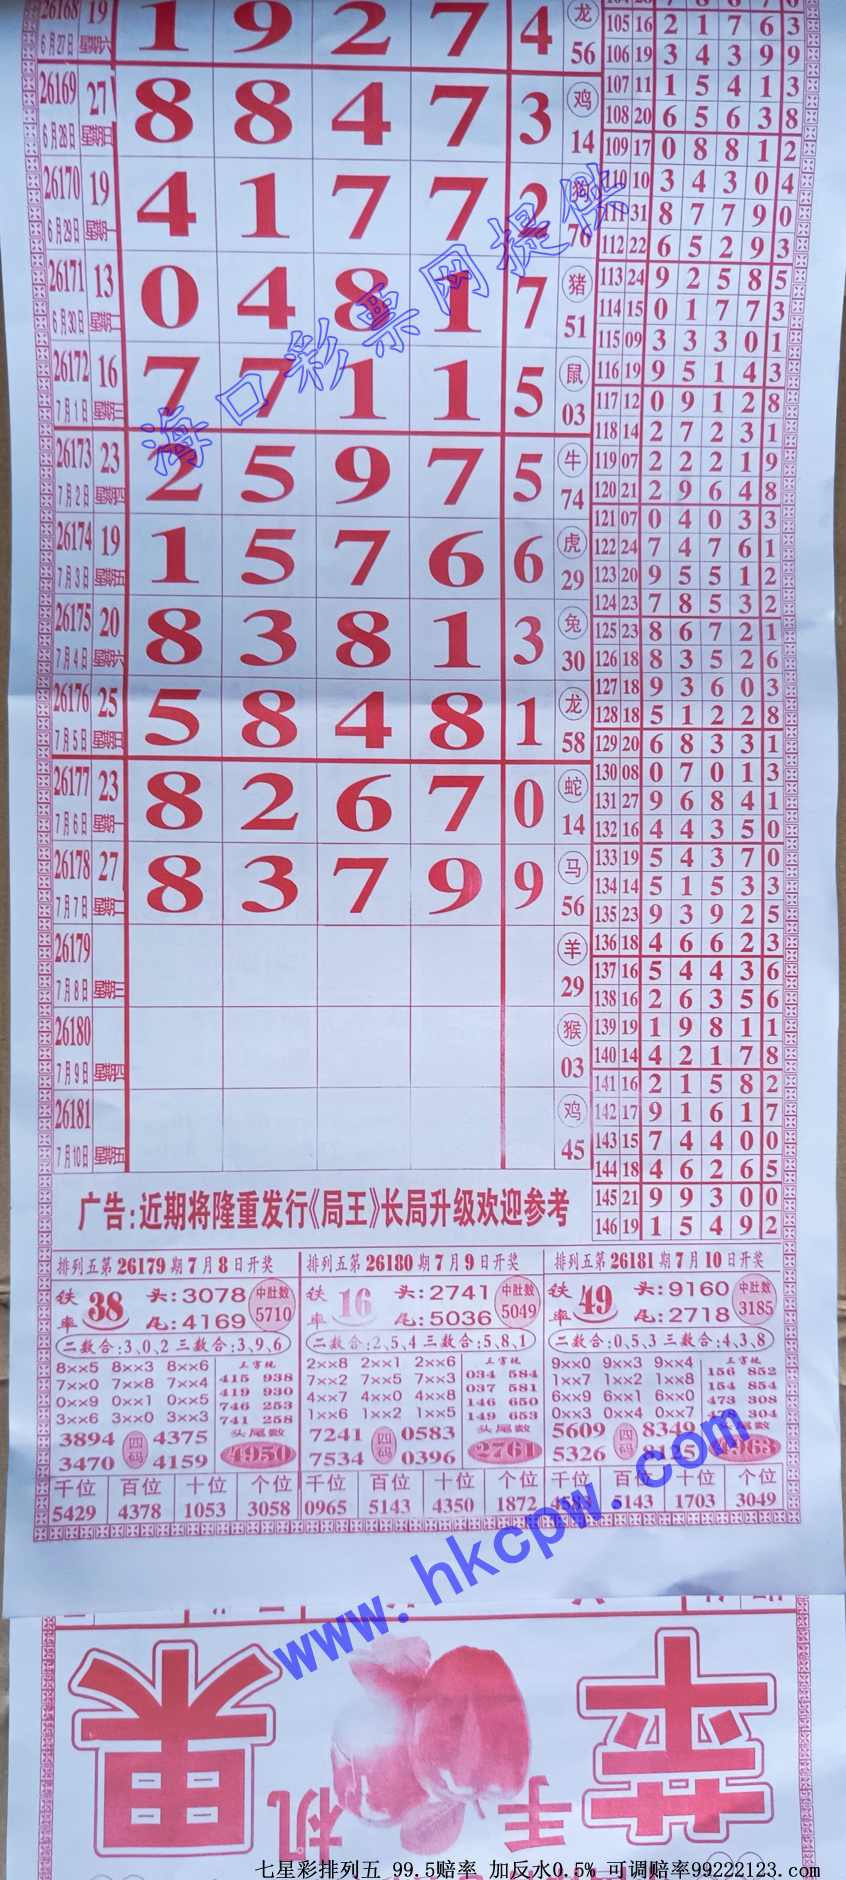 26168 19 1 9 2 7 4 龙
6月27日 星期六 56
26169 27 8 8 4 7 3 鸡
6月28日 星期日 14
26170 19 4 1 7 7 2 狗
6月29日 星期一 76
26171 13 0 4 8 1 7 猪
6月30日 星期二 51
26172 16 7 7 1 1 5 鼠
7月1日 星期三 03
26173 23 2 5 9 7 5 牛
7月2日 星期四 74
26174 19 1 5 7 6 6 虎
7月3日 星期五 29
26175 20 8 3 8 1 3 兔
7月4日 星期六 30
26176 25 5 8 4 8 1 龙
7月5日 星期日 58
26177 23 8 2 6 7 0 蛇
7月6日 星期一 14
26178 27 8 3 7 9 9 马
7月7日 星期二 56
26179 羊
7月8日 星期三 29
26180 猴
7月9日 星期四 03
26181 鸡
7月10日 星期五 45
105 16 2 1 7 6 3
106 19 3 4 3 9 9
107 11 1 5 4 1 3
108 20 6 5 6 3 8
109 17 0 8 8 1 2
110 10 3 4 3 0 4
111 31 8 7 7 9 0
112 22 6 5 2 9 3
113 24 9 2 5 8 5
114 15 0 1 7 7 3
115 09 3 3 3 0 1
116 19 9 5 1 4 3
117 12 0 9 1 2 8
118 14 2 7 2 3 1
119 07 2 2 2 1 9
120 21 2 9 6 4 8
121 07 0 4 0 3 3
122 24 7 4 7 6 1
123 20 9 5 5 1 2
124 23 7 8 5 3 2
125 23 8 6 7 2 1
126 18 8 3 5 2 6
127 18 9 3 6 0 3
128 18 5 1 2 2 8
129 20 6 8 3 3 1
130 08 0 7 0 1 3
131 27 9 6 8 4 1
132 16 4 4 3 5 0
133 19 5 4 3 7 0
134 14 5 1 5 3 3
135 23 9 3 9 2 5
136 18 4 6 6 2 3
137 16 5 4 4 3 6
138 16 2 6 3 5 6
139 19 1 9 8 1 1
140 14 4 2 1 7 8
141 16 2 1 5 8 2
142 17 9 1 6 1 7
143 15 7 4 4 0 0
144 18 4 6 2 6 5
145 21 9 9 3 0 0
146 19 1 5 4 9 2
海口彩票网提供
广告:近期将隆重发行《局王》长局升级欢迎参考
排列五第26179期7月8日开奖
铁率 38 头:3078 中肚数
尾:4169 5710
二数合:3,0,2 三数合:3,9,6
8××5 8××3 8××6
7××0 7××8 7××4 415 938
0××9 0××1 0××5 419 930
3××6 3××0 3××3 746 253
741 258
3894 四码 4375 头尾数
3470 4159 4950
千位 百位 十位 个位
5429 4378 1053 3058
排列五第26180期7月9日开奖
铁率 16 头:2741 中肚数
尾:5036 5049
二数合:2,5,4 三数合:5,8,1
2××8 2××1 2××6
7××2 7××5 7××3 034 584
4××7 4××0 4××8 037 581
1××6 1××2 1××5 146 650
149 653
7241 四码 0583 头尾数
7534 0396 2761
千位 百位 十位 个位
0965 5143 4350 1872
排列五第26181期7月10日开奖
铁率 49 头:9160 中肚数
尾:2718 3185
二数合:0,5,3 三数合:4,3,8
9××0 9××3 9××4
1××7 1××2 1××8 156 852
6××9 6××1 6××0 154 854
0××3 0××4 0××7 473 308
304
5609 四码 8349
5326
千位 百位 十位 个位
5143 1703 3049
www.hkcpw.com
果
机
手
七星彩排列五 99.5赔率 加反水0.5% 可调赔率99222123.com